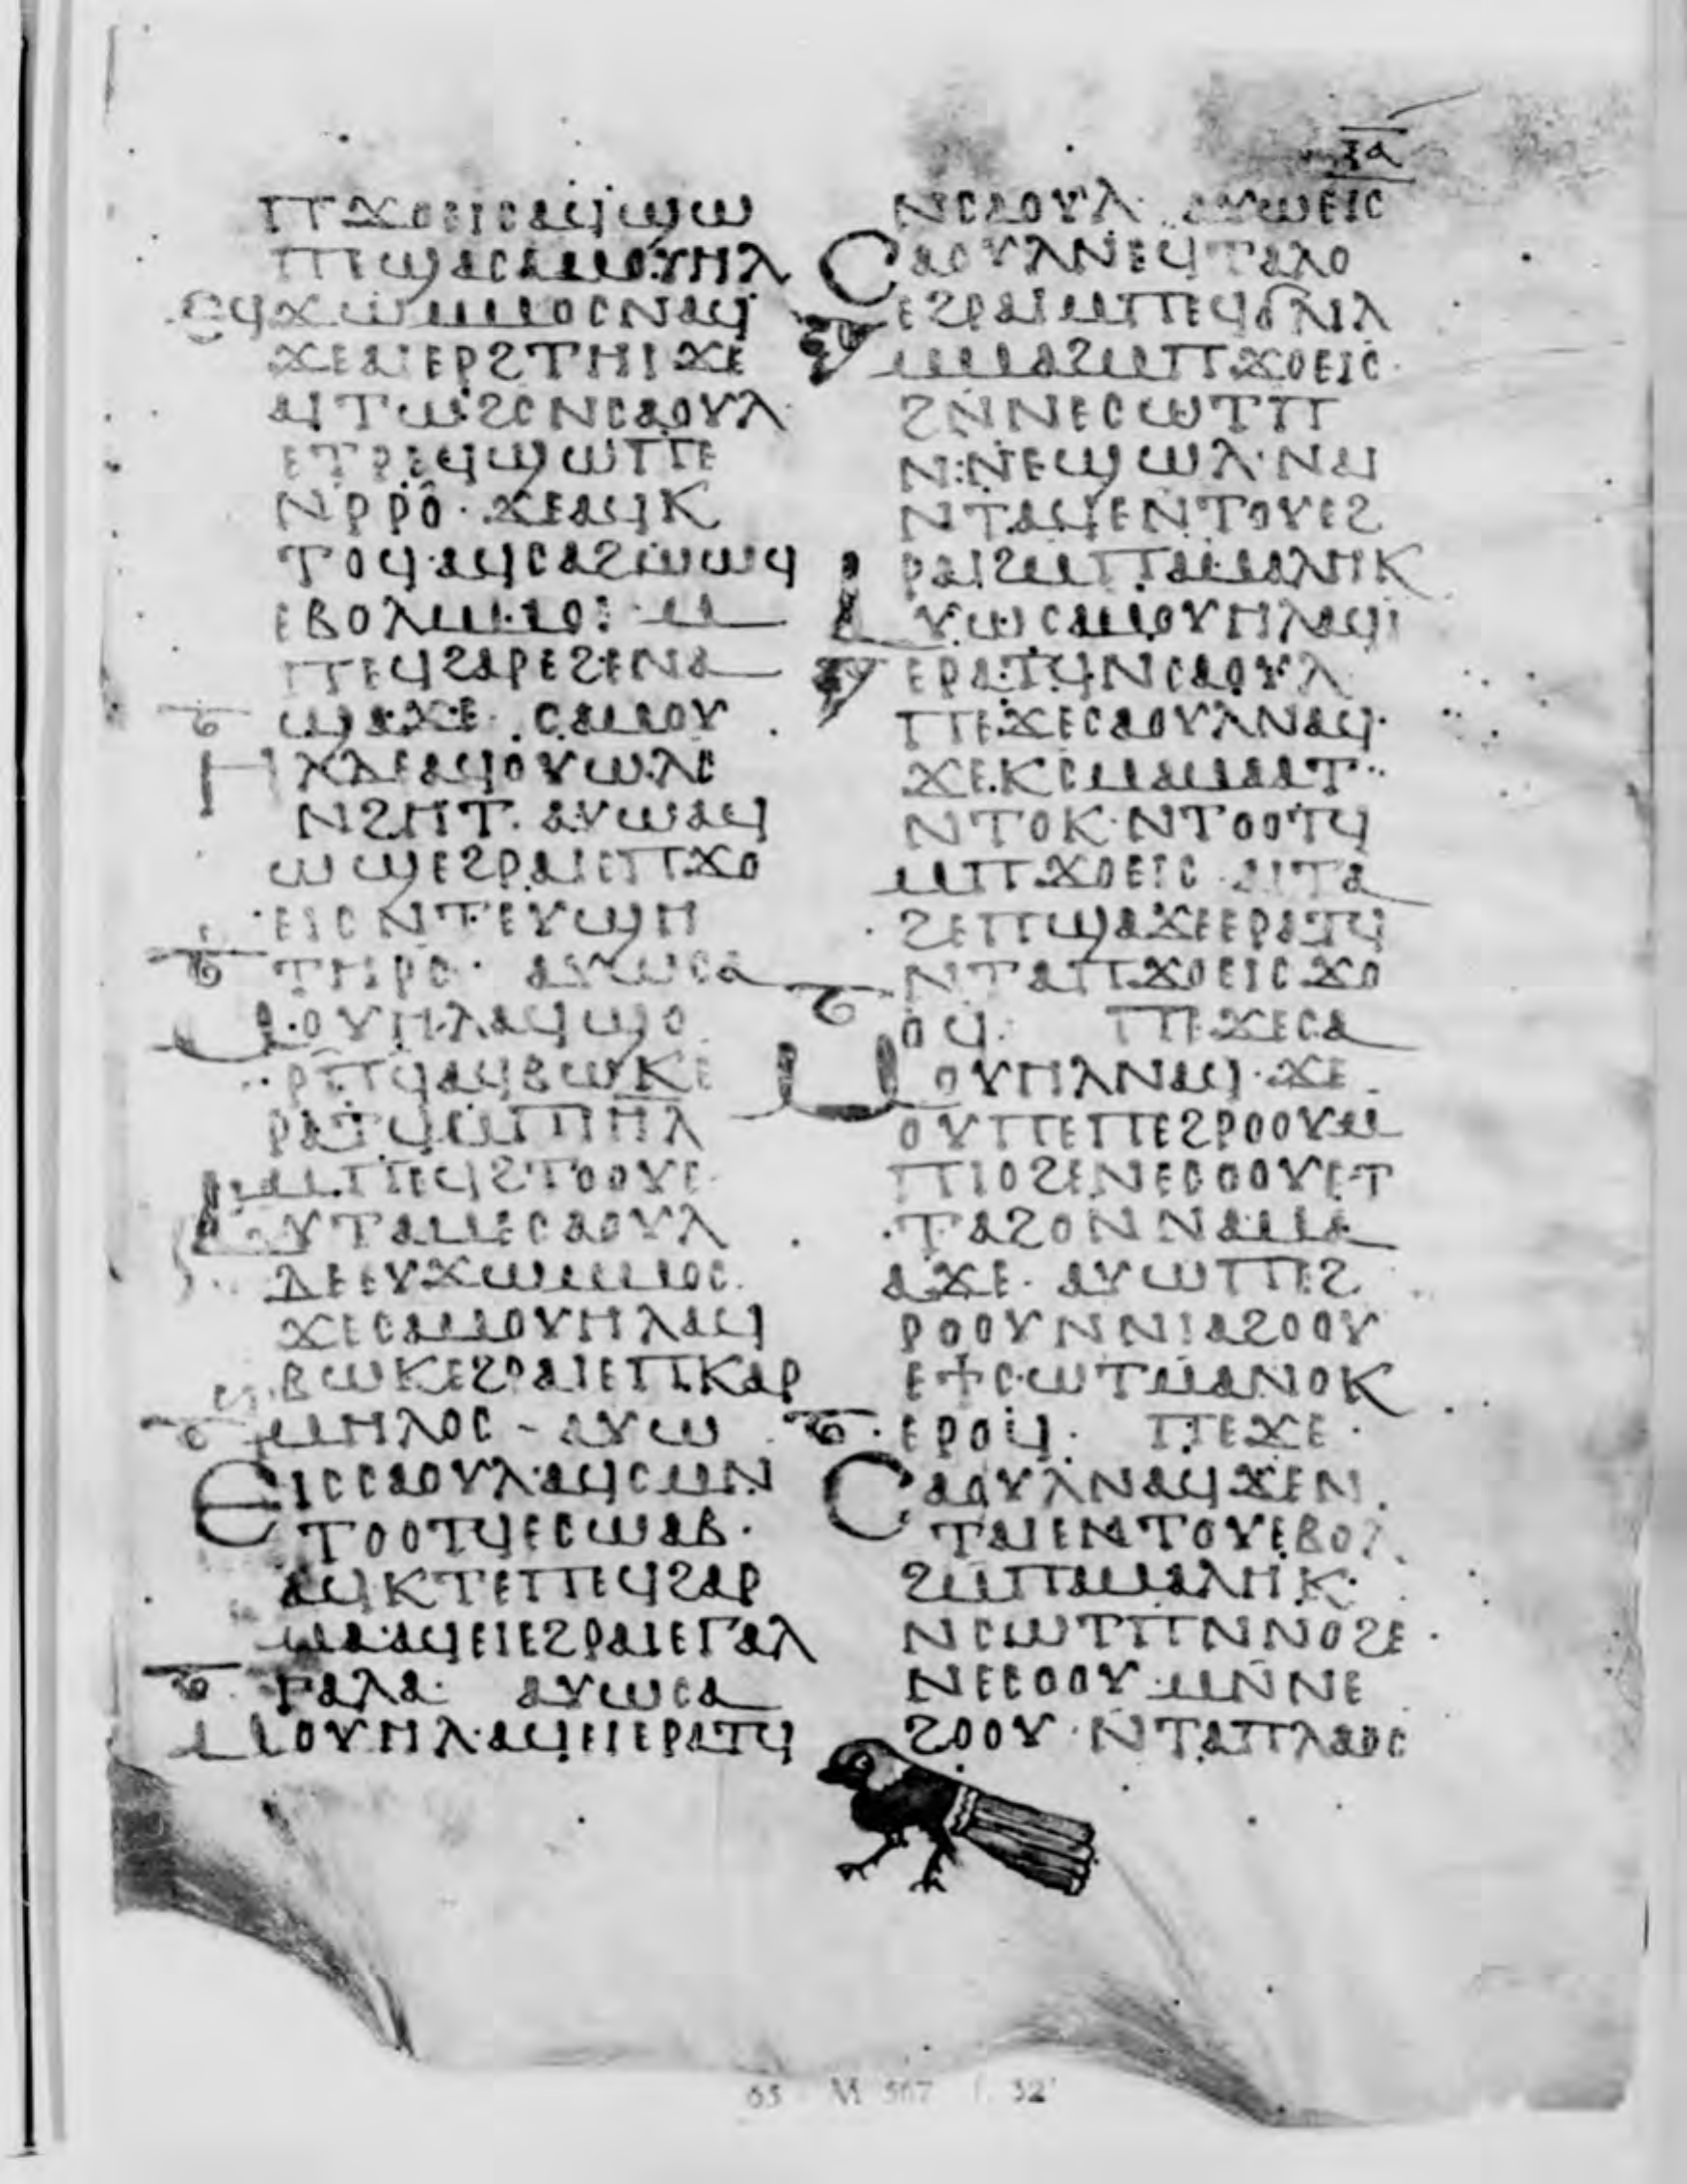 ⲝⲁ
ⲡϫⲟⲉⲓⲥⲁϥϣⲱ
ⲡⲉϣⲁⲥⲁⲙⲟⲩⲏⲗ
ⲉϥϫⲱⲙⲙⲟⲥⲛⲁϥ
ϫⲉⲁⲓⲉⲣϩⲧⲏⲓϫⲉ
ⲁⲓⲧⲱϩⲥⲛⲥⲁⲟⲩⲗ
ⲉⲧⲣⲉϥϣⲱⲡⲉ
ⲛⲣⲣⲟ· ϫⲉⲁϥⲕ
ⲧⲟϥ·ⲁϥⲥⲁϩⲱⲱϥ
ⲉⲃⲟⲗⲙⲙⲟⲓ· ⲙ
ⲡⲉϥϩⲁⲣⲉϩⲉⲛⲁ
ϣⲁϫⲉ· ⲥⲁⲙⲟⲩ
ⲏⲗⲇⲉⲁϥⲟⲩⲱⲗⲥ
ⲛϩⲏⲧ· ⲁⲩⲱⲁϥ
ⲱϣⲉϩⲣⲁⲓⲉⲡϫⲟ
ⲉⲓⲥⲛⲧⲉⲩϣⲏ
ⲧⲏⲣⲥ· ⲁⲩⲱⲥⲁ
ⲙⲟⲩⲏⲗⲁϥϣⲟ
ⲣⲡϥⲁϥⲃⲱⲕⲉ
ⲣⲁⲧϥⲙⲡⲓⲏⲗ
ⲙⲡⲉϥϩⲧⲟⲟⲩⲉ·
ⲁⲩⲧⲁⲙⲉⲥⲁⲟⲩⲗ
ⲇⲉⲉⲩϫⲱⲙⲙⲟⲥ
ϫⲉⲥⲁⲙⲟⲩⲏⲗⲁϥ
ⲃⲱⲕⲉϩⲣⲁⲓⲉⲡⲕⲁⲣ
ⲙⲏⲗⲟⲥ – ⲁⲩⲱ
ⲉⲓⲥⲥⲁⲟⲩⲗ·ⲁϥⲥⲙⲛ
ⲧⲟⲟⲧϥⲉⲥⲱⲁⲃ·
ⲁϥⲕⲧⲉⲡⲉϥϩⲁⲣ
ⲙⲁ·ⲁϥⲉⲓⲉϩⲣⲁⲓⲉⲅⲁⲗ
ⲅⲁⲗⲁ· ⲁⲩⲱⲥⲁ
ⲙⲟⲩⲏⲗ·ⲁϥⲉⲓⲉⲣⲁⲧϥ
ⲛⲥⲁⲟⲩⲗ· ⲁⲩⲱⲉⲓⲥ
ⲥⲁⲟⲩⲗⲛⲉϥⲧⲁⲗⲟ
ⲉϩⲣⲁⲓⲙⲡⲉϥϭⲗⲓⲗ
ⲙⲙⲁϩⲙⲡϫⲟⲉⲓⲥ·
ϩⲛⲛⲉⲥⲱⲧⲡ
ⲛ·ⲛⲉϣⲱⲗ·ⲛⲁⲓ
ⲛⲧⲁϥⲉⲛⲧⲟⲩⲉϩ
ⲣⲁⲓϩⲙⲡⲁⲙⲁⲗⲏⲕ
ⲁⲩⲱⲥⲁⲙⲟⲩⲏⲗⲁϥⲓ
ⲉⲣⲁⲧϥⲛⲥⲁⲟⲩⲗ
ⲡⲉϫⲉⲥⲁⲟⲩⲗⲛⲁϥ·
ϫⲉⲕⲥⲙⲁⲙⲁⲁⲧ··
ⲛⲧⲟⲕ·ⲛⲧⲟⲟⲧϥ
ⲙⲡϫⲟⲉⲓⲥ ⲁⲓⲧⲁ
ϩⲉⲡϣⲁϫⲉⲉⲣⲁⲧϥ
ⲛⲧⲁⲡϫⲟⲉⲓⲥϫⲟ
ⲟϥ· ⲡⲉϫⲉⲥⲁ
ⲙⲟⲩⲏⲗⲛⲁϥ·ϫⲉ
ⲟⲩⲡⲉⲡⲉϩⲣⲟⲟⲩⲙ
ⲡⲓⲟϩⲉⲛⲉⲥⲟⲟⲩⲉⲧ
ⲧⲁϩⲟⲛⲛⲁⲙⲁ
ⲁϫⲉ· ⲁⲩⲱⲡⲉϩ
ⲣⲟⲟⲩⲛⲛⲓⲁϩⲟⲟⲩ
ⲉϯⲥⲱⲧⲙⲁⲛⲟⲕ
ⲉⲣⲟϥ· ⲡⲉϫⲉ·
ⲥⲁⲟⲩⲗⲛⲁϥϫⲉⲛ
ⲧⲁⲓⲉⲛⲧⲟⲩⲉⲃⲟⲗ
ϩⲙⲡⲁⲙⲁⲗⲏⲕ·
ⲛⲥⲱⲧⲡⲛⲛⲟϩⲉ·
ⲛⲉⲥⲟⲟⲩ·ⲙⲛⲛⲉ
ϩⲟⲟⲩ·ⲛⲧⲁⲡⲗⲁⲟⲥ
65 M 567 f. 32ʳ